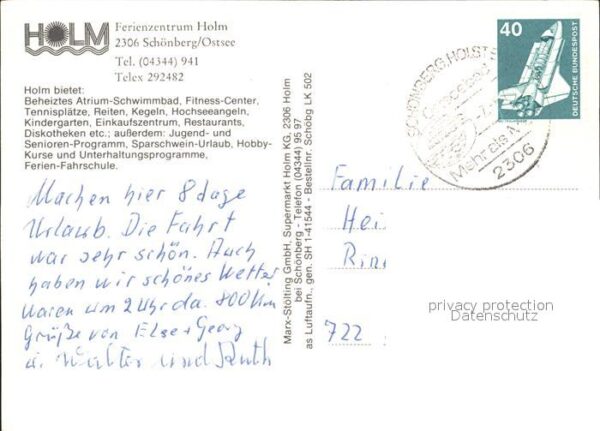 HOLM
Ferienzentrum Holm
2306 Schönberg/Ostsee
Tel. (04344) 941
Telex 292482
Holm bietet:
Beheiztes Atrium-Schwimmbad, Fitness-Center,
Tennisplätze, Reiten, Kegeln, Hochseeangeln,
Kindergarten, Einkaufszentrum, Restaurants,
Diskotheken etc.; außerdem: Jugend- und
Senioren-Programm, Sparschwein-Urlaub, Hobby-
Kurse und Unterhaltungsprogramme,
Ferien-Fahrschule.
Machen hier 8 dage
Urlaub. Die Fahrt
war sehr schön. Auch
haben wir schönes Wetter
waren um 2 Uhr da. 800 Km
Grüße von Else + Georg
u. Walter und Ruth
Marx-Stölting GmbH, Supermarkt Holm KG, 2306 Holm
bei Schönberg - Telefon (04344) 95 97
as Luftaufn., gen. SH 1-41544 - Bestellnr. Schöbg LK 502
40
DEUTSCHE BUNDESPOST
SCHÖNBERG, HOLST
Mehr als
2306
Familie
Hei
Rin
722
privacy protection
Datenschutz